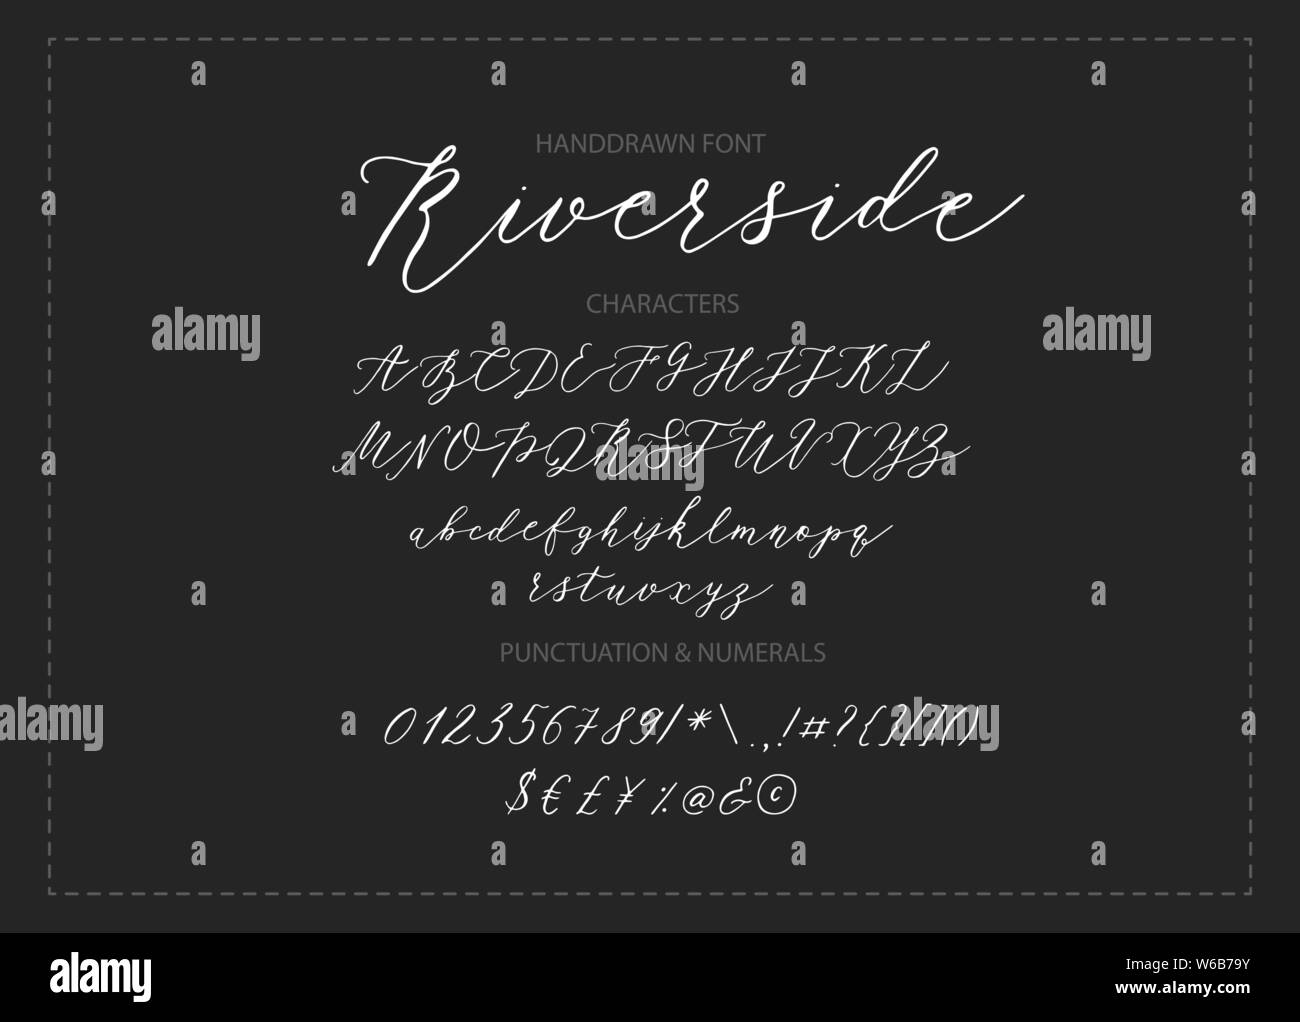 HANDDRAWN FONT
Riverside
CHARACTERS
ABCDEFGHIJKL
MNOPQRSTUVXYZ
abcdefghijklmnopq
rstuvxyz
PUNCTUATION & NUMERALS
012356789/*\.,!#?{}[]()
$€£¥%@&©
alamy
alamy
alamy
alamy
alamy
alamy
Image ID: W6B79Y
www.alamy.com